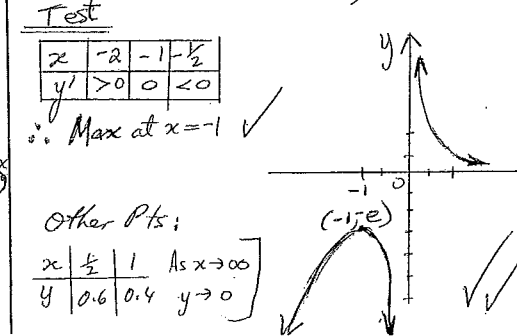 Test
x | -2 | -1 | -½
y' | >0 | 0 | <0
∴ Max at x=-1 ✓
Other Pts:
x | ½ | 1 As x→∞
y | 0.6 | 0.4 y→0
y
-1 0
(-1,-e)